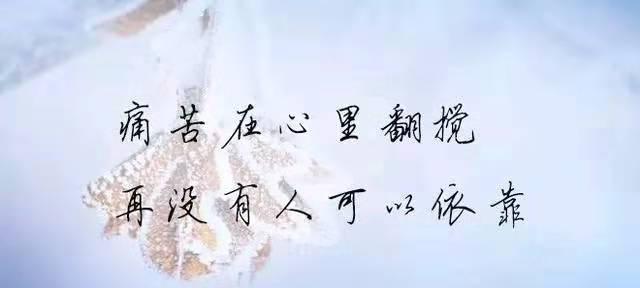 痛苦在心里翻搅
再没有人可以依靠